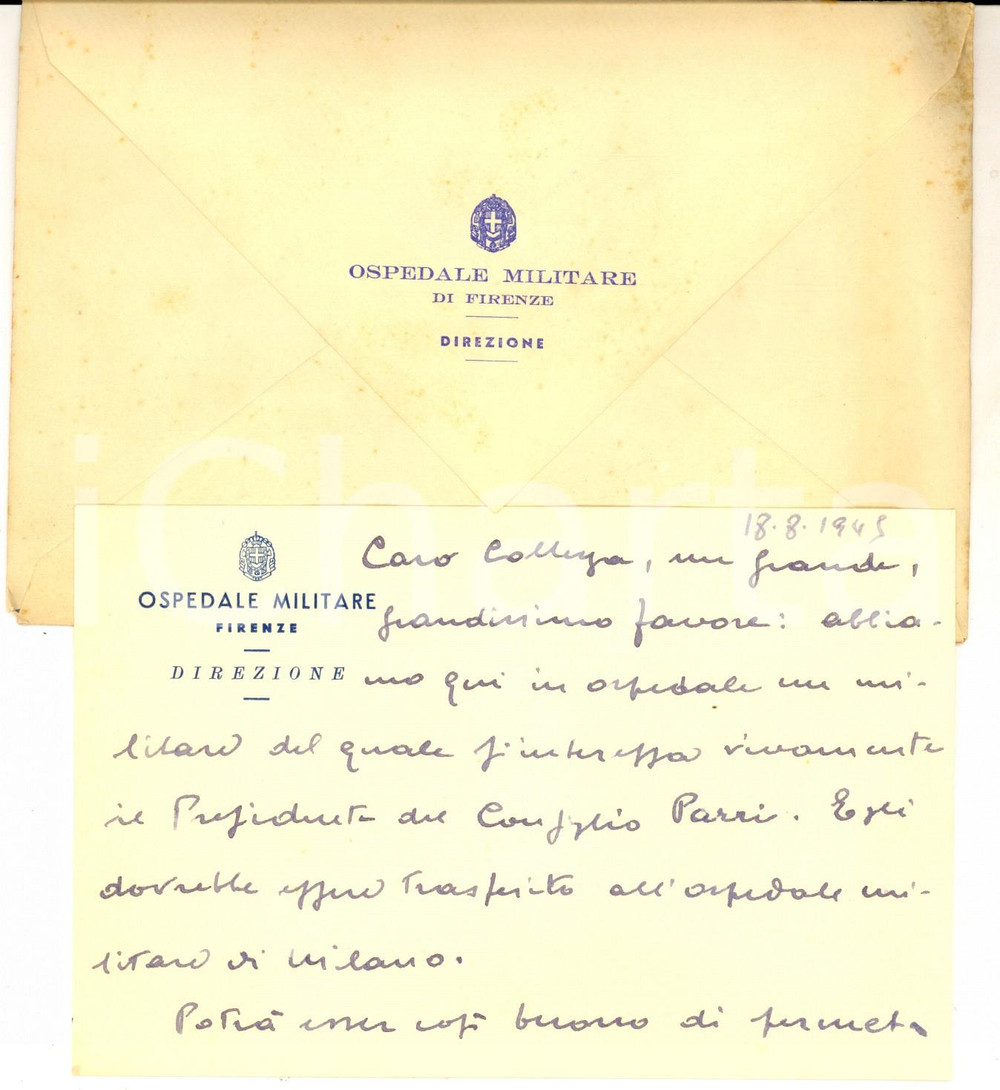 OSPEDALE MILITARE
DI FIRENZE
DIREZIONE
iCharta
18.8.1945
OSPEDALE MILITARE
FIRENZE
DIREZIONE
Caro Collega, un grande,
grandissimo favore: abbia-
mo qui in ospedale un mi-
litare del quale s'interessa vivamente
il Presidente del Consiglio Parri. Egli
dovrebbe essere trasferito all'ospedale mi-
litare di Milano.
Potrà esser così buono di permet-